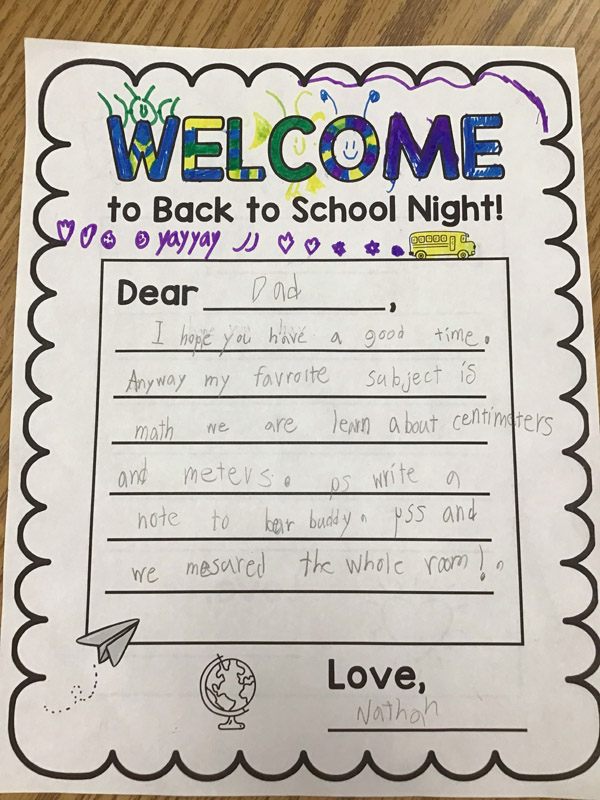 WELCOME
to Back to School Night!
yay yay
Dear Dad,
I hope you have a good time.
Anyway my favroite subject is
math we are learn about centimeters
and meters. ps write a
note to bear buddy. pss and
we mesured the whole room!.
Love,
Nathan